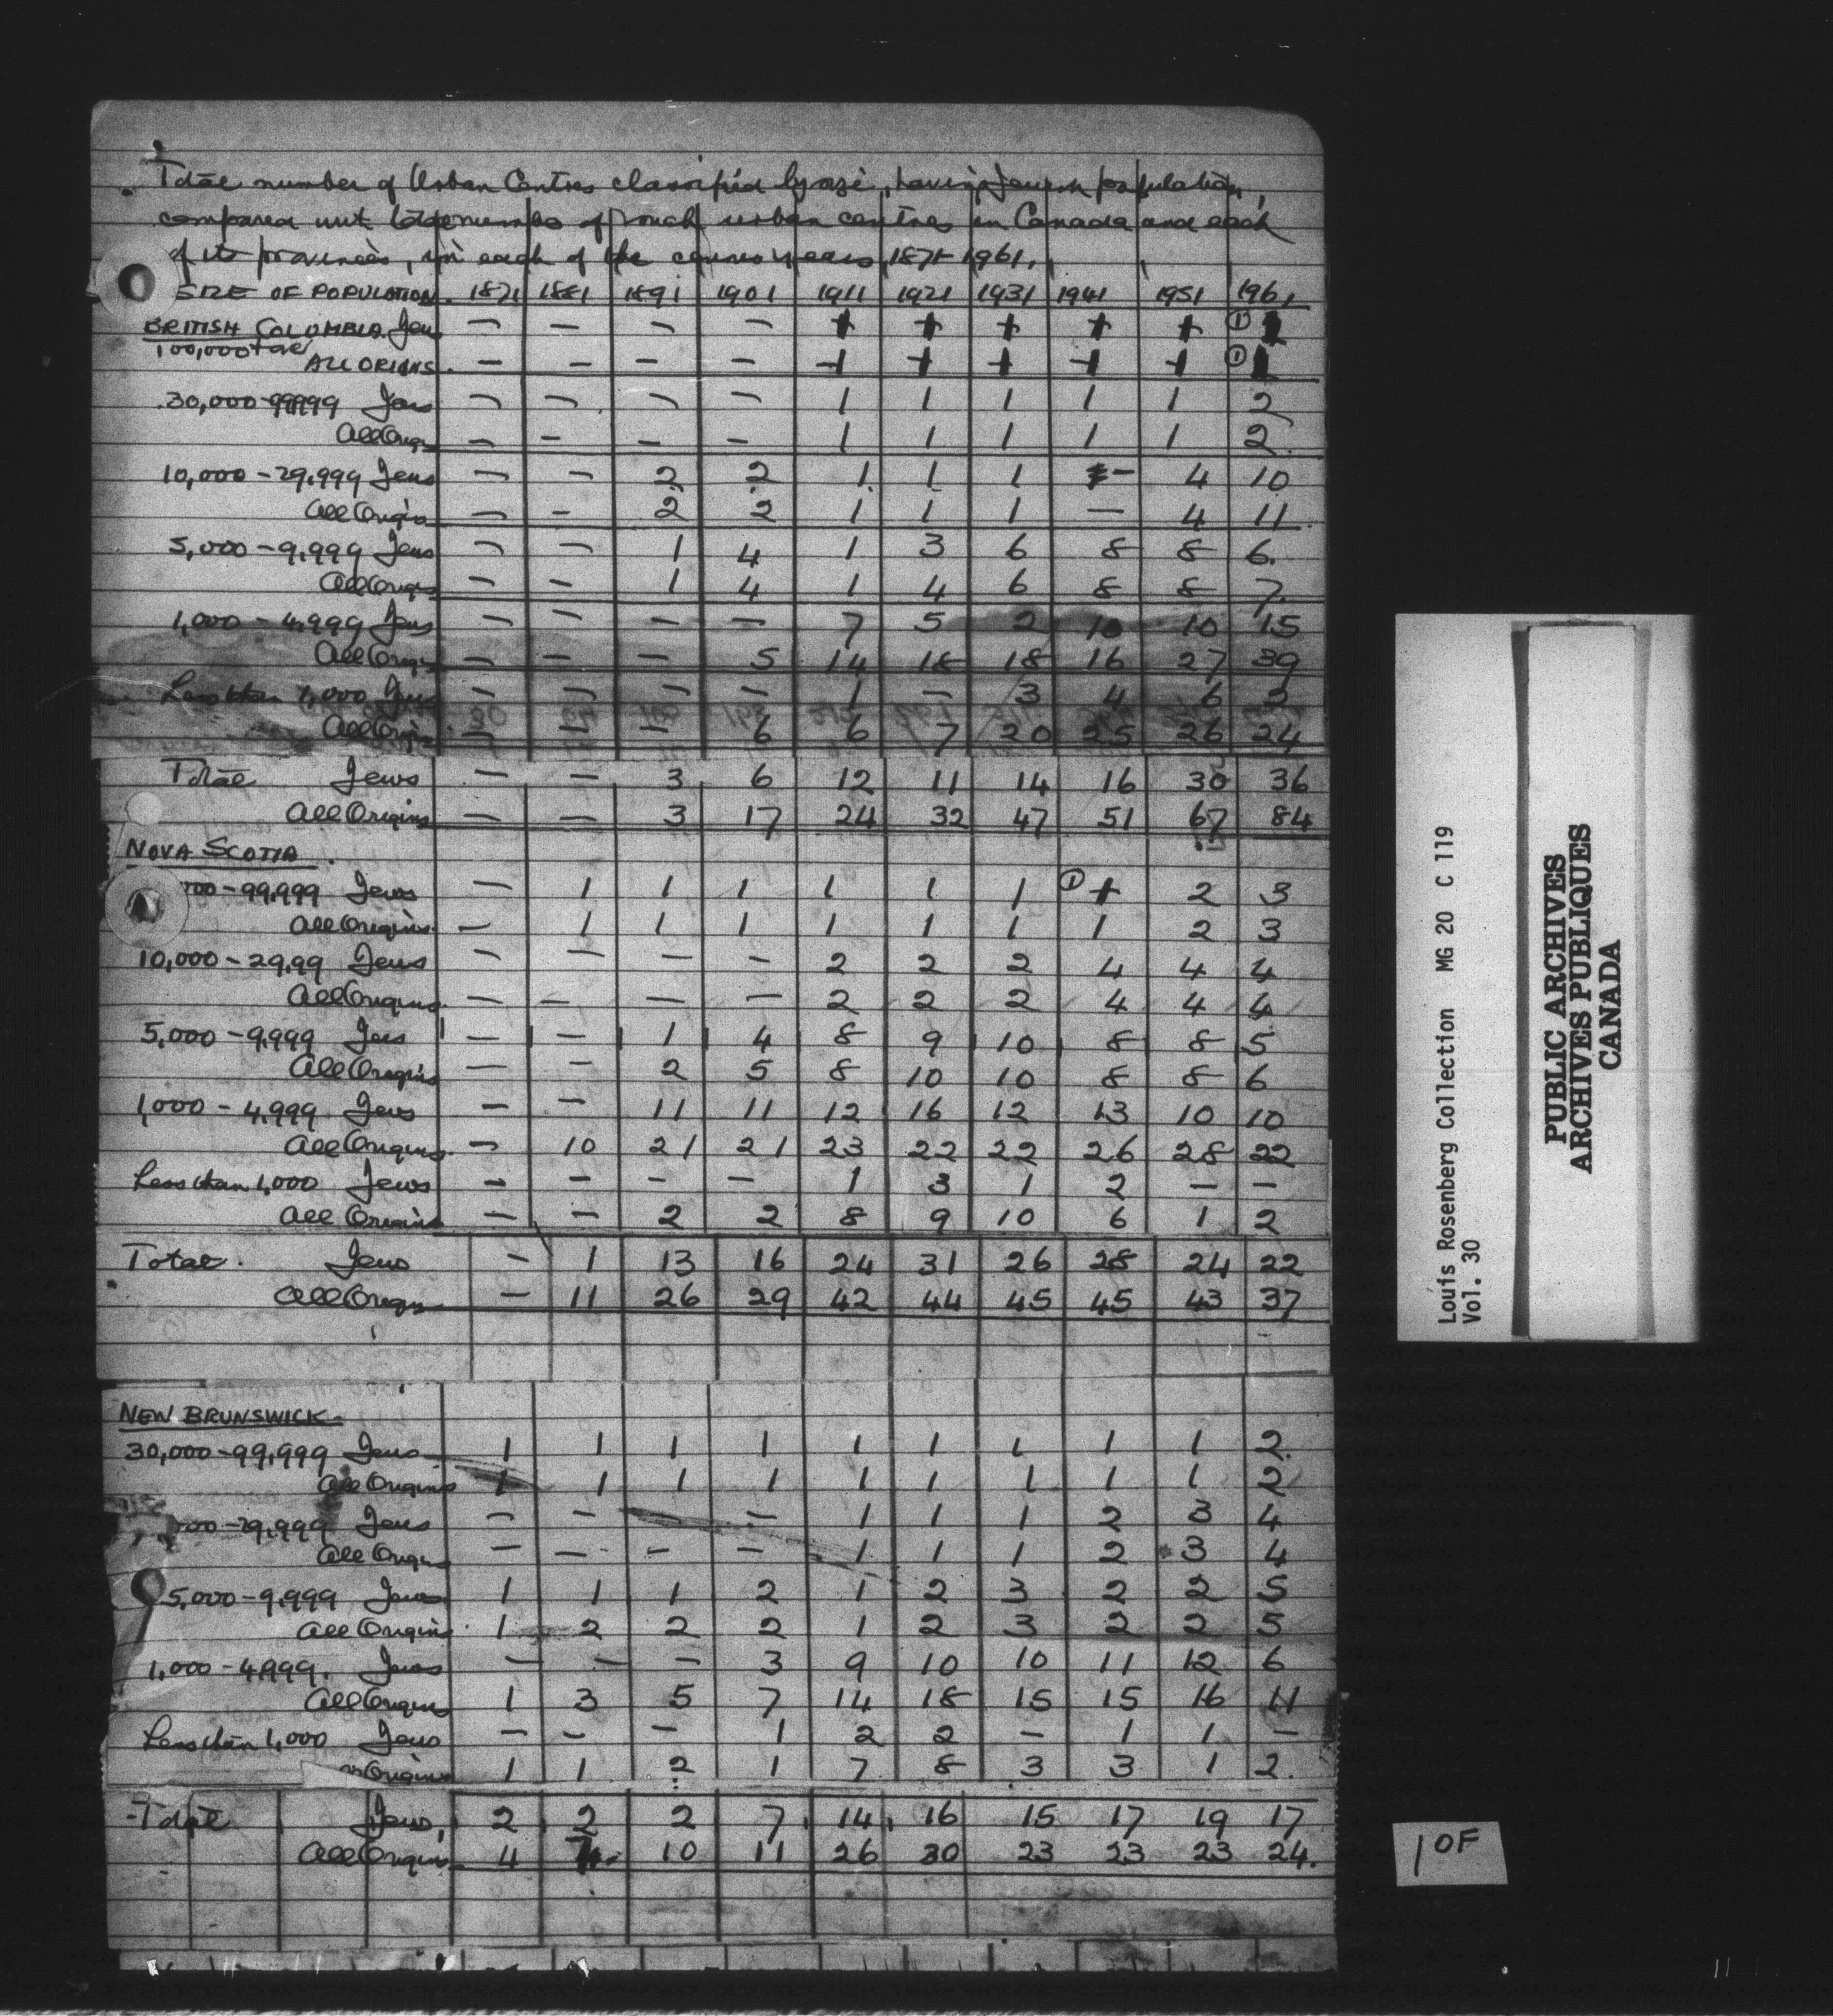 Total number of Urban Centres classified by size, having Jewish population,
compared with total number of such urban centres in Canada and each
of its provinces, in each of the census years 1871-1961.
SIZE OF POPULATION. 1871 1881 1891 1901 1911 1921 1931 1941 1951 1961
BRITISH COLUMBIA. Jews — — — — + + + + + ① 1
100,000 + over
ALL ORIGINS. — — — — + + + + + ① 1
30,000-99,999 Jews — — — — 1 1 1 1 1 2
All Origs — — — — 1 1 1 1 1 2
10,000-29,999 Jews — — 2 2 1 1 1 — 4 10
All Origins — — 2 2 1 1 1 — 4 11
5,000-9,999 Jews — — 1 4 1 3 6 8 8 6
All Origs — — 1 4 1 4 6 8 8 7
1,000-4,999 Jews — — — — 7 5 2 10 10 15
All Origs — — — 5 14 18 18 16 27 39
Less than 1,000 Jews — — — — 1 — 3 4 6 3
All Origins — — — 6 6 7 20 25 26 24
Total Jews — — 3 6 12 11 14 16 30 36
All Origins — — 3 17 24 32 47 51 67 84
NOVA SCOTIA.
000-99,999 Jews — 1 1 1 1 1 1 ① + 2 3
All Origins — 1 1 1 1 1 1 1 2 3
10,000-29,99 Jews — — — — 2 2 2 4 4 4
All Origins — — — — 2 2 2 4 4 4
5,000-9,999 Jews — — 1 4 8 9 10 8 8 5
All Origins — — 2 5 8 10 10 8 8 6
1,000-4,999 Jews — — 11 11 12 16 12 13 10 10
All Origins — 10 21 21 23 22 22 26 28 22
Less than 1,000 Jews — — — — 1 3 1 2 — —
All Origins — — 2 2 8 9 10 6 1 2
Total. Jews — 1 13 16 24 31 26 28 24 22
All Origs — 11 26 29 42 44 45 45 43 37
NEW BRUNSWICK.
30,000-99,999 Jews 1 1 1 1 1 1 1 1 1 2
All Origins 1 1 1 1 1 1 1 1 1 2
000-29,999 Jews — — — 1 1 1 2 3 4
All Origins — — — — 1 1 1 2 3 4
5,000-9,999 Jews 1 1 1 2 1 2 3 2 2 5
All Origins 1 2 2 2 1 2 3 2 2 5
1,000-4,999. Jews — — — 3 9 10 10 11 12 6
All Origins 1 3 5 7 14 18 15 15 16 11
Less than 1,000 Jews — — — 1 2 2 — 1 1 —
Origins 1 1 2 1 7 8 3 3 1 2
Total Jews, 2 2 2 7 14 16 15 17 19 17
All Origins 4 7 10 11 26 30 23 23 23 24
Louis Rosenberg Collection MG 20 C 119
Vol. 30
PUBLIC ARCHIVES
ARCHIVES PUBLIQUES
CANADA
1 OF